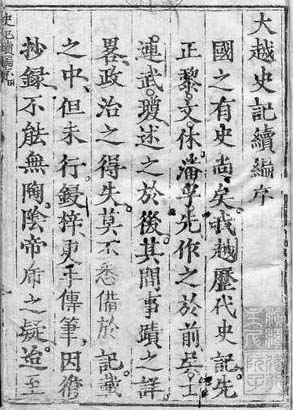 大越史記續編序
國之有史尚矣我越歷代史記先
正黎文休潘孚先作之於前吳士
連武瓊述之於後其間事蹟之詳
畧政治之得失莫不悉備於記載
之中但未行鋟梓更手傳筆因循
抄録不能無陶陰帝乕之疑迨至
史記續編序